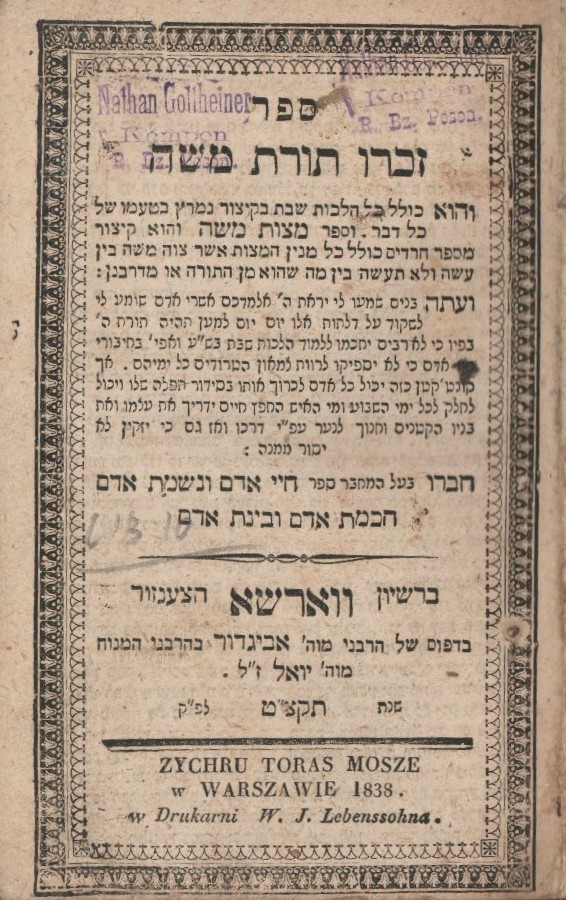 Nathan Goltheiner
Kempen
R. Bz. Posen.
Kempen
R. Bz. Posen.
ספר
זכרו תורת משה
והוא כולל כל הלכות שבת בקיצור נמרץ בטעמו של
כל דבר. וספר מצות משה והוא קיצור
מספר חרדים כולל כל מנין המצות אשר צוה משה בין
עשה ולא תעשה בין מה שהוא מן התורה או מדרבנן:
ועתה בנים שמעו לי יראת ה' אלמדכם אשרי אדם שומע לי
לשקוד על דלתות אלו יום יום למען תהיה תורת ה'
בפיו כי לא רבים יחכמו ללמוד הלכות שבת בש"ע ואפי' בחיבורי
אדם כי לא יספיקו לרוות למאון הטרודים כל ימיהם. אך
קונט' קטן כזה יכול כל אדם לכרוך אותו בסידור תפלה שלו ויכול
לחלק לכל ימי השבוע ומי האיש החפץ חיים ידריך את עצמו ואת
בניו הקטנים וחנוך לנער עפ"י דרכו ואז גם כי יזקין לא
יסור ממנה:
חברו בעל המחבר ספר חיי אדם ונשמת אדם
חכמת אדם ובינת אדם
ברשיון ווארשא הצענזור
בדפוס של הרבני מוה' אביגדור בהרבני המנוח
מוה' יואל ז"ל.
שנת תקצ"ט לפ"ק
ZYCHRU TORAS MOSZE
w WARSZAWIE 1838.
w Drukarni W. J. Lebenssohna.